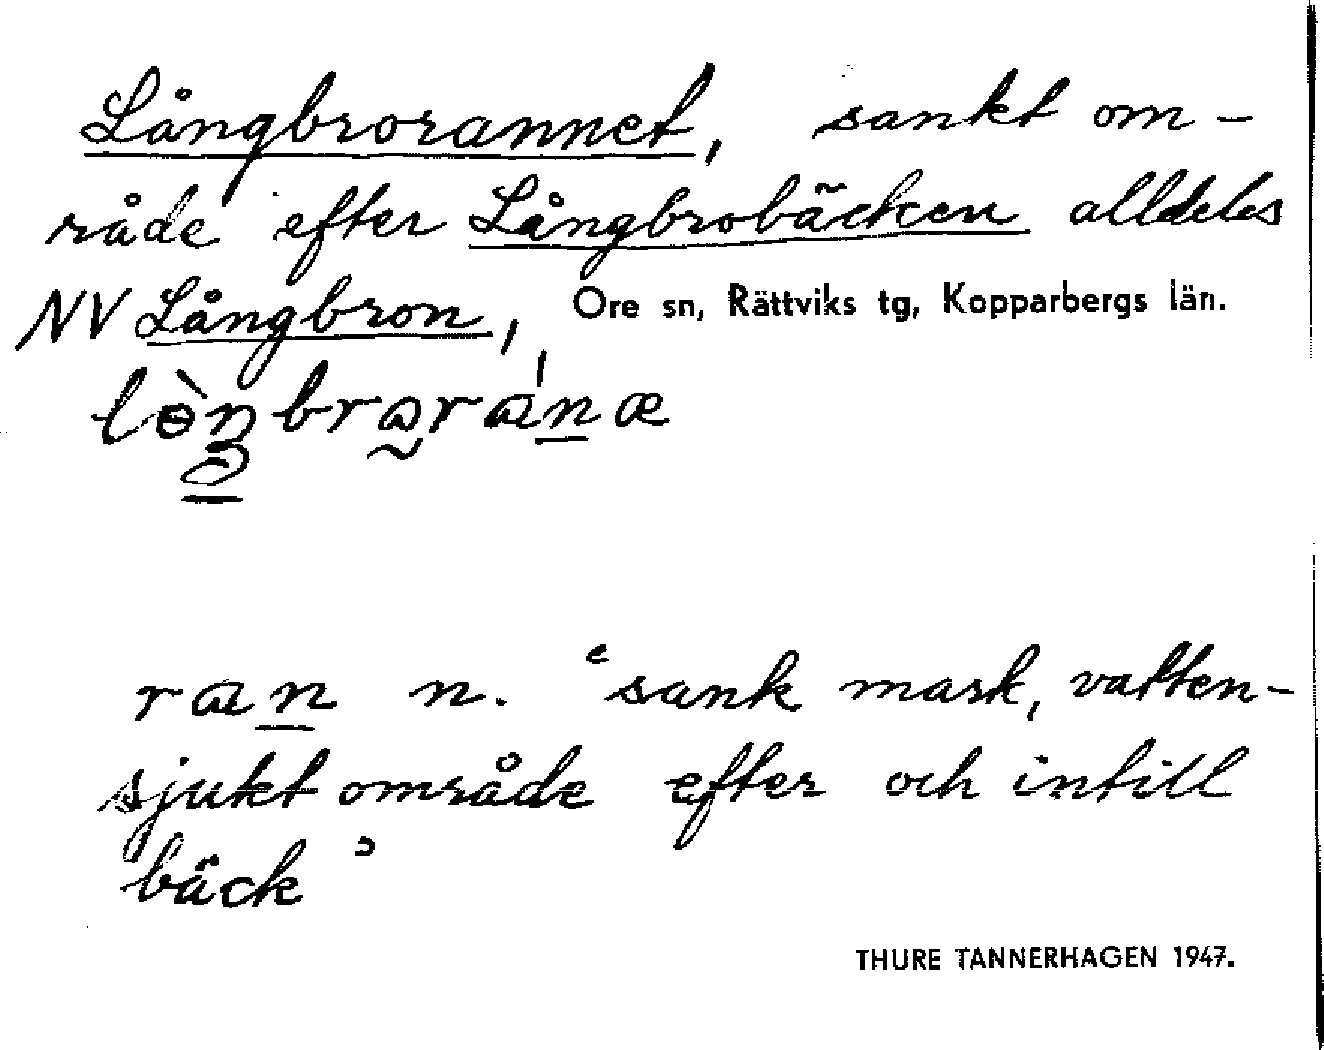 Långbrorannet, sankt om-
råde efter Långbrobäcken alldeles
NV Långbron, Ore sn, Rättviks tg, Kopparbergs län.
n. ‘sank mark, vatten-
sjukt område efter och intill
bäck’
THURE TANNERHAGEN 1947.